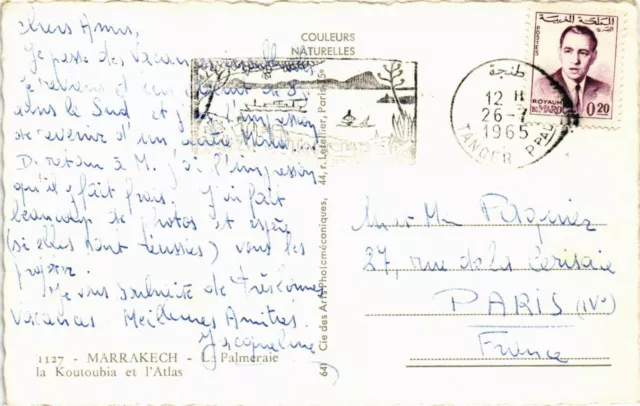 Chers Amis,
Je passe des Vacances
Je reviens d'un
dans le Sud et j'ai l'impression
de revenir d'un autre Monde.
De retour à M. j'ai l'impression
qu'il y fait frais. J'ai fait
beaucoup de photos et espère
(si elles sont réussies) vous les
projeter.
Je vous souhaite de très bonnes
Vacances Meilleures Amitiés.
Jacqueline
1127 - MARRAKECH - La Palmeraie
la Koutoubia et l'Atlas
COULEURS
NATURELLES
Cie des Arts Photomécaniques, 44, r. Letellier, Paris-15
64
المملكة المغربية
POSTES
ROYAUME
DU MAROC
0.20
طنجة
12 H
26-7
1965
TANGER PPAL
M et Mme
27, rue de la Cerisaie
PARIS (IVe)
France